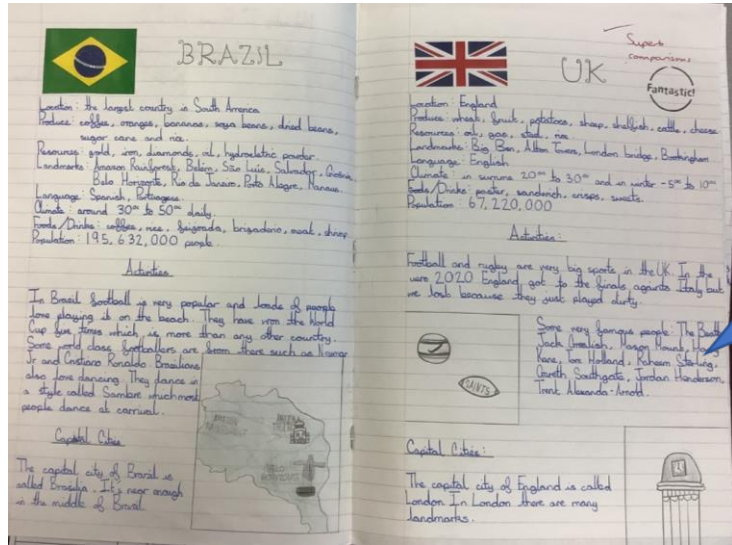 BRAZIL
Location: the largest country in South America
Produce: coffee, oranges, bananas, soya beans, dried beans,
sugar cane and rice.
Resources: gold, iron, diamonds, oil, hydroletric powder.
Landmarks: Amazon Rainforest, Belém, São Luis, Salvador,
Belo Horizonte, Rio de Janaro, Porto Alagre, Manaus.
Language: Spanish, Portuguese
Climate: around 30°c to 50°c daily.
Foods/Drinks: coffee, rice, feijoada, brigadeiro, meat, shrimp
Population: 195,632,000 people.
Activities
In Brazil football is very popular and loads of people
love playing it on the beach. They have won the World
Cup five times which is more than any other country.
Some world class footballers are from there such as
Jr and Cristiano Ronaldo. Brazilians
also love dancing. They dance in
a style called Sambre which most
people dance at carnival.
Capital Cities
The capital city of Brazil is
called Brasilia. It's near enough
in the middle of Brazil.
UK
Superb
comparisons
Fantastic!
Location: England
Produce: wheat, fruit, potatoes, sheep, shellfish, cattle, cheese
Resources: oil, gas, steel,
Landmarks: Big Ben, Alton Towers, London bridge, Buckingham
Language: English
Climate: in summer 20°c to 30°c and in winter -5°c to 10°c
Foods/Drinks: sandwich, crisps, sweets.
Population: 67,220,000
Activities:
Football and rugby are very big sports in the UK. In the
2020 England got to the finals against Italy but
we lost because they just played dirty.
SAINTS
Some very famous people: The
Jack Grealish, Mason Mount, Harry
Kane, Tom Holland, Raheem Sterling,
Gareth Southgate, Jordan Henderson,
Trent Alexanda-Arnold.
Capital Cities:
The capital city of England is called
London. In London there are many
landmarks.